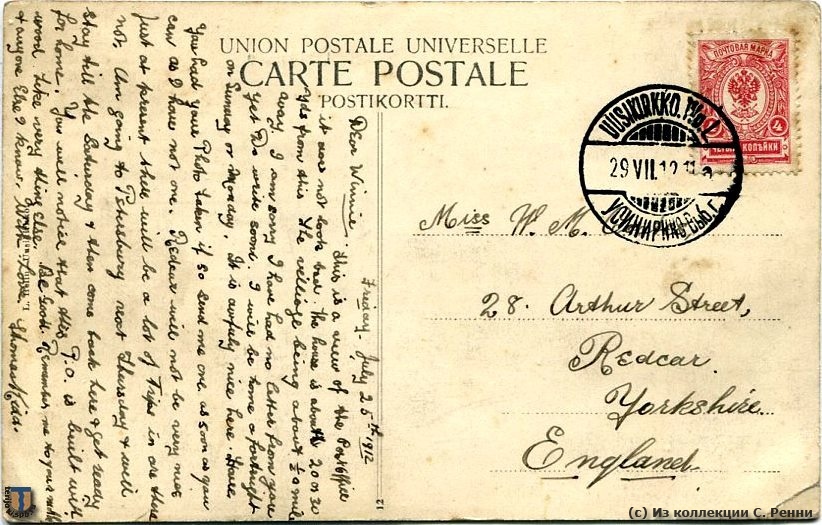 UNION POSTALE UNIVERSELLE
CARTE POSTALE
POSTIKORTTI.
ПОЧТОВАЯ МАРКА
4
КОПѢЙКИ
UUSIKIRKKO.
29 VII.12
УСИКИРККО-ВЫБ.Г.
Miss W. M.
28. Arthur Street,
Redcar.
Yorkshire
England.
Friday. July 25th 1912
Dear Winnie. This is a view of the Post Office
it does not look bad. The house is about 20 or 30
yds from this the village being about ½ a mile
away. I am sorry I have had no letter from you
yet. Do write soon. I will be home a fortnight
on Sunday or Monday. It is awfully nice here. Have
You had your Photo taken if so send me one as soon as you
can as I have not one. Redcar will not be very nice
just at present there will be a lot of Trips in are there
not. Am going to Petersburg next Thursday & will
stay till the Saturday & then come back here & get ready
for home. You will notice that this P.O. is built with
wood like every thing else. Be Good. Remember me to your
& anyone Else I know. With
Thomas
12
terijoki.spb.ru
(c) Из коллекции С. Ренни